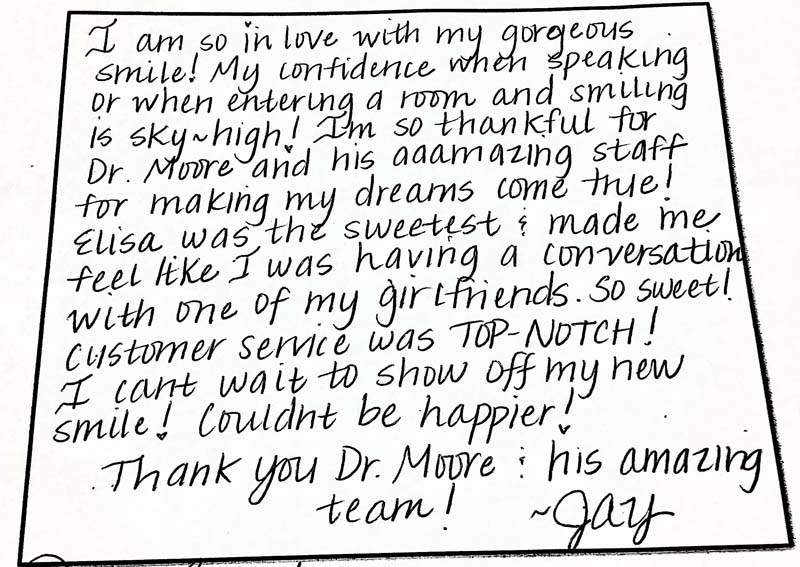 I am so in love with my gorgeous
smile! My confidence when speaking
or when entering a room and smiling
is sky~high! Im so thankful for
Dr. Moore and his aaamazing staff
for making my dreams come true!
Elisa was the sweetest & made me
feel like I was having a conversation
with one of my girlfriends. So sweet!
Customer service was TOP-NOTCH!
I cant wait to show off my new
smile! Couldnt be happier!
Thank you Dr. Moore & his amazing
team! ~Jay